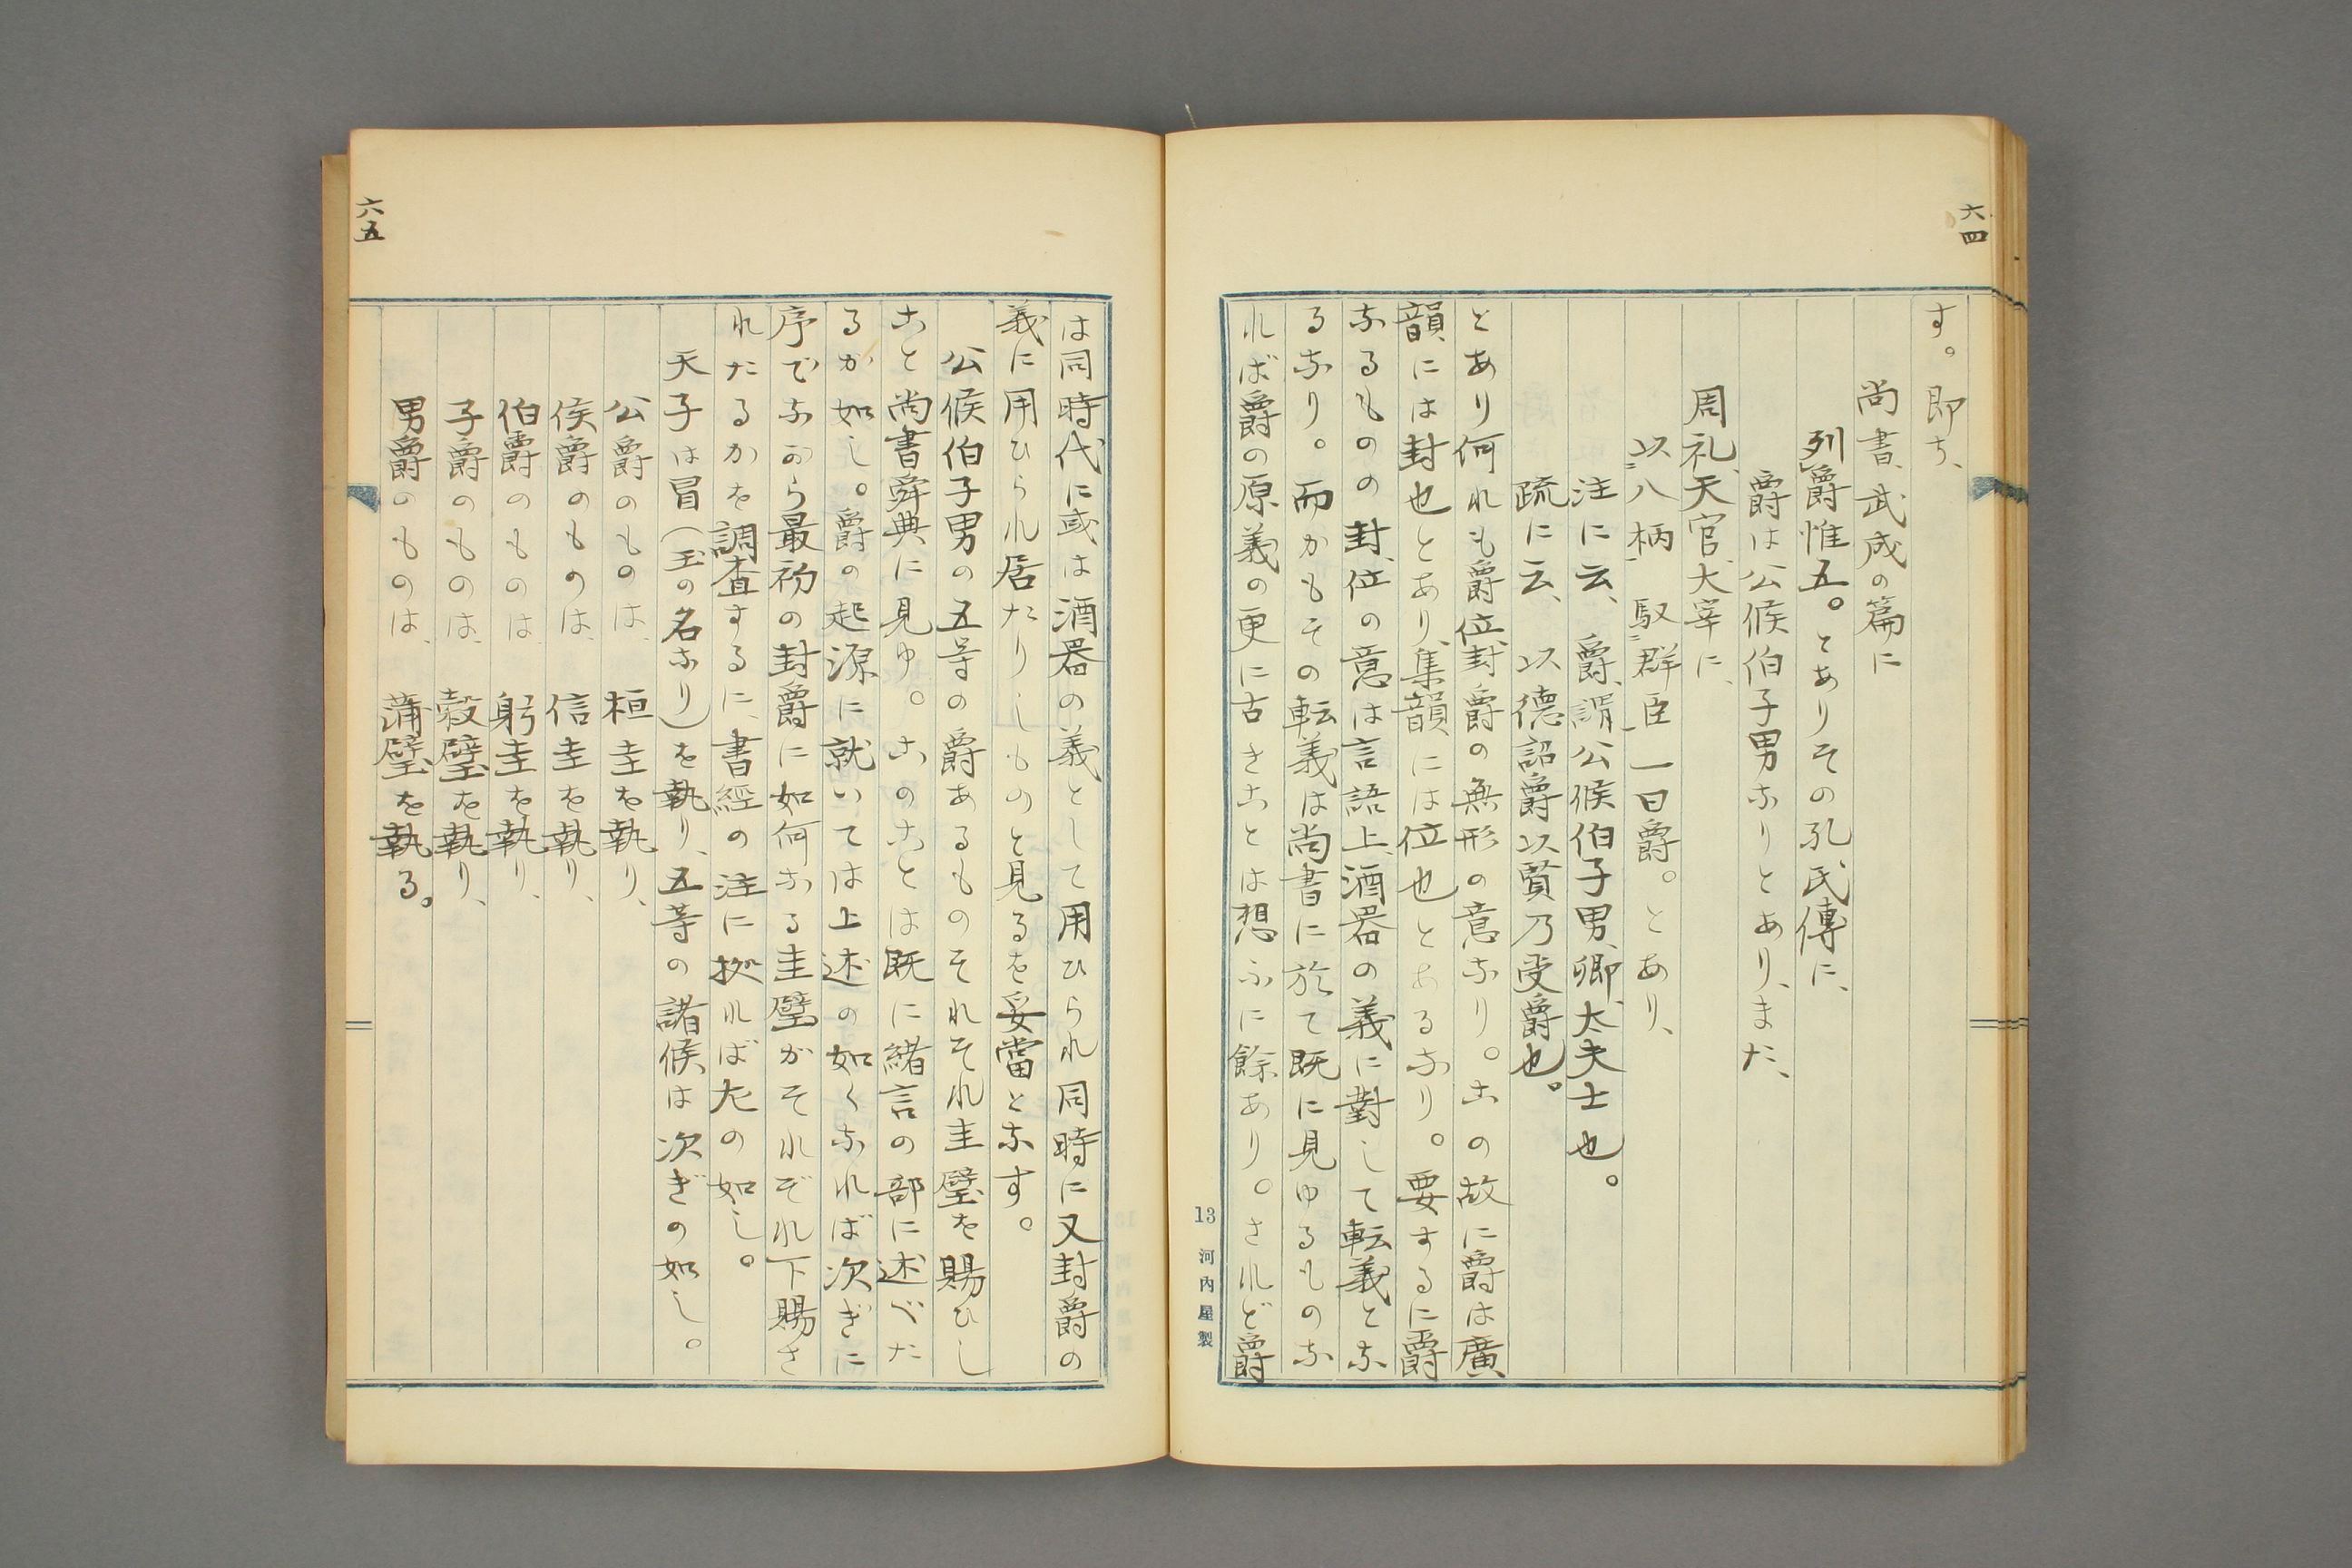 六四
す。即ち、
尚書、武成の篇に
列爵惟五。とありその孔氏傳に、
爵は公候伯子男なりとあり、また、
周礼、天官、大宰に、
以八柄 馭群臣 一曰爵。とあり、
注に云、爵、謂公候伯子男、卿、大夫士也。
疏に云、以德詔爵以賢乃受爵也。
とあり何れも爵位、封爵の無形の意なり。この故に爵は廣
韻には封也とあり、集韻には位也とあるなり。要するに爵
なるものの封、位の意は言語上、酒器の義に對して転義とな
るなり。而かもその転義は尚書に於て既に見ゆるものな
れば爵の原義の更に古きことは想ふに餘あり。されど爵
13 河内屋製
六五
は同時代に或は酒器の義として用ひられ同時に又封爵の
義に用ひられ居たりしものと見るを妥當となす。
公候伯子男の五等の爵あるものそれそれ圭璧を賜ひし
こと尚書舜典に見ゆ。このことは既に緒言の部に述べた
るが如し。爵の起源に就いては上述の如くなれば次ぎに
序でながら最初の封爵に如何なる圭璧がそれぞれ下賜さ
れたるかを調査するに、書經の注に拠れば左の如し。
天子は冒（玉の名なり）を執り、五等の諸候は次ぎの如し。
公爵のものは、 桓圭を執り、
侯爵のものは、 信圭を執り、
伯爵のものは 躬圭を執り、
子爵のものは、 穀璧を執り、
男爵のものは、 蒲璧を執る。